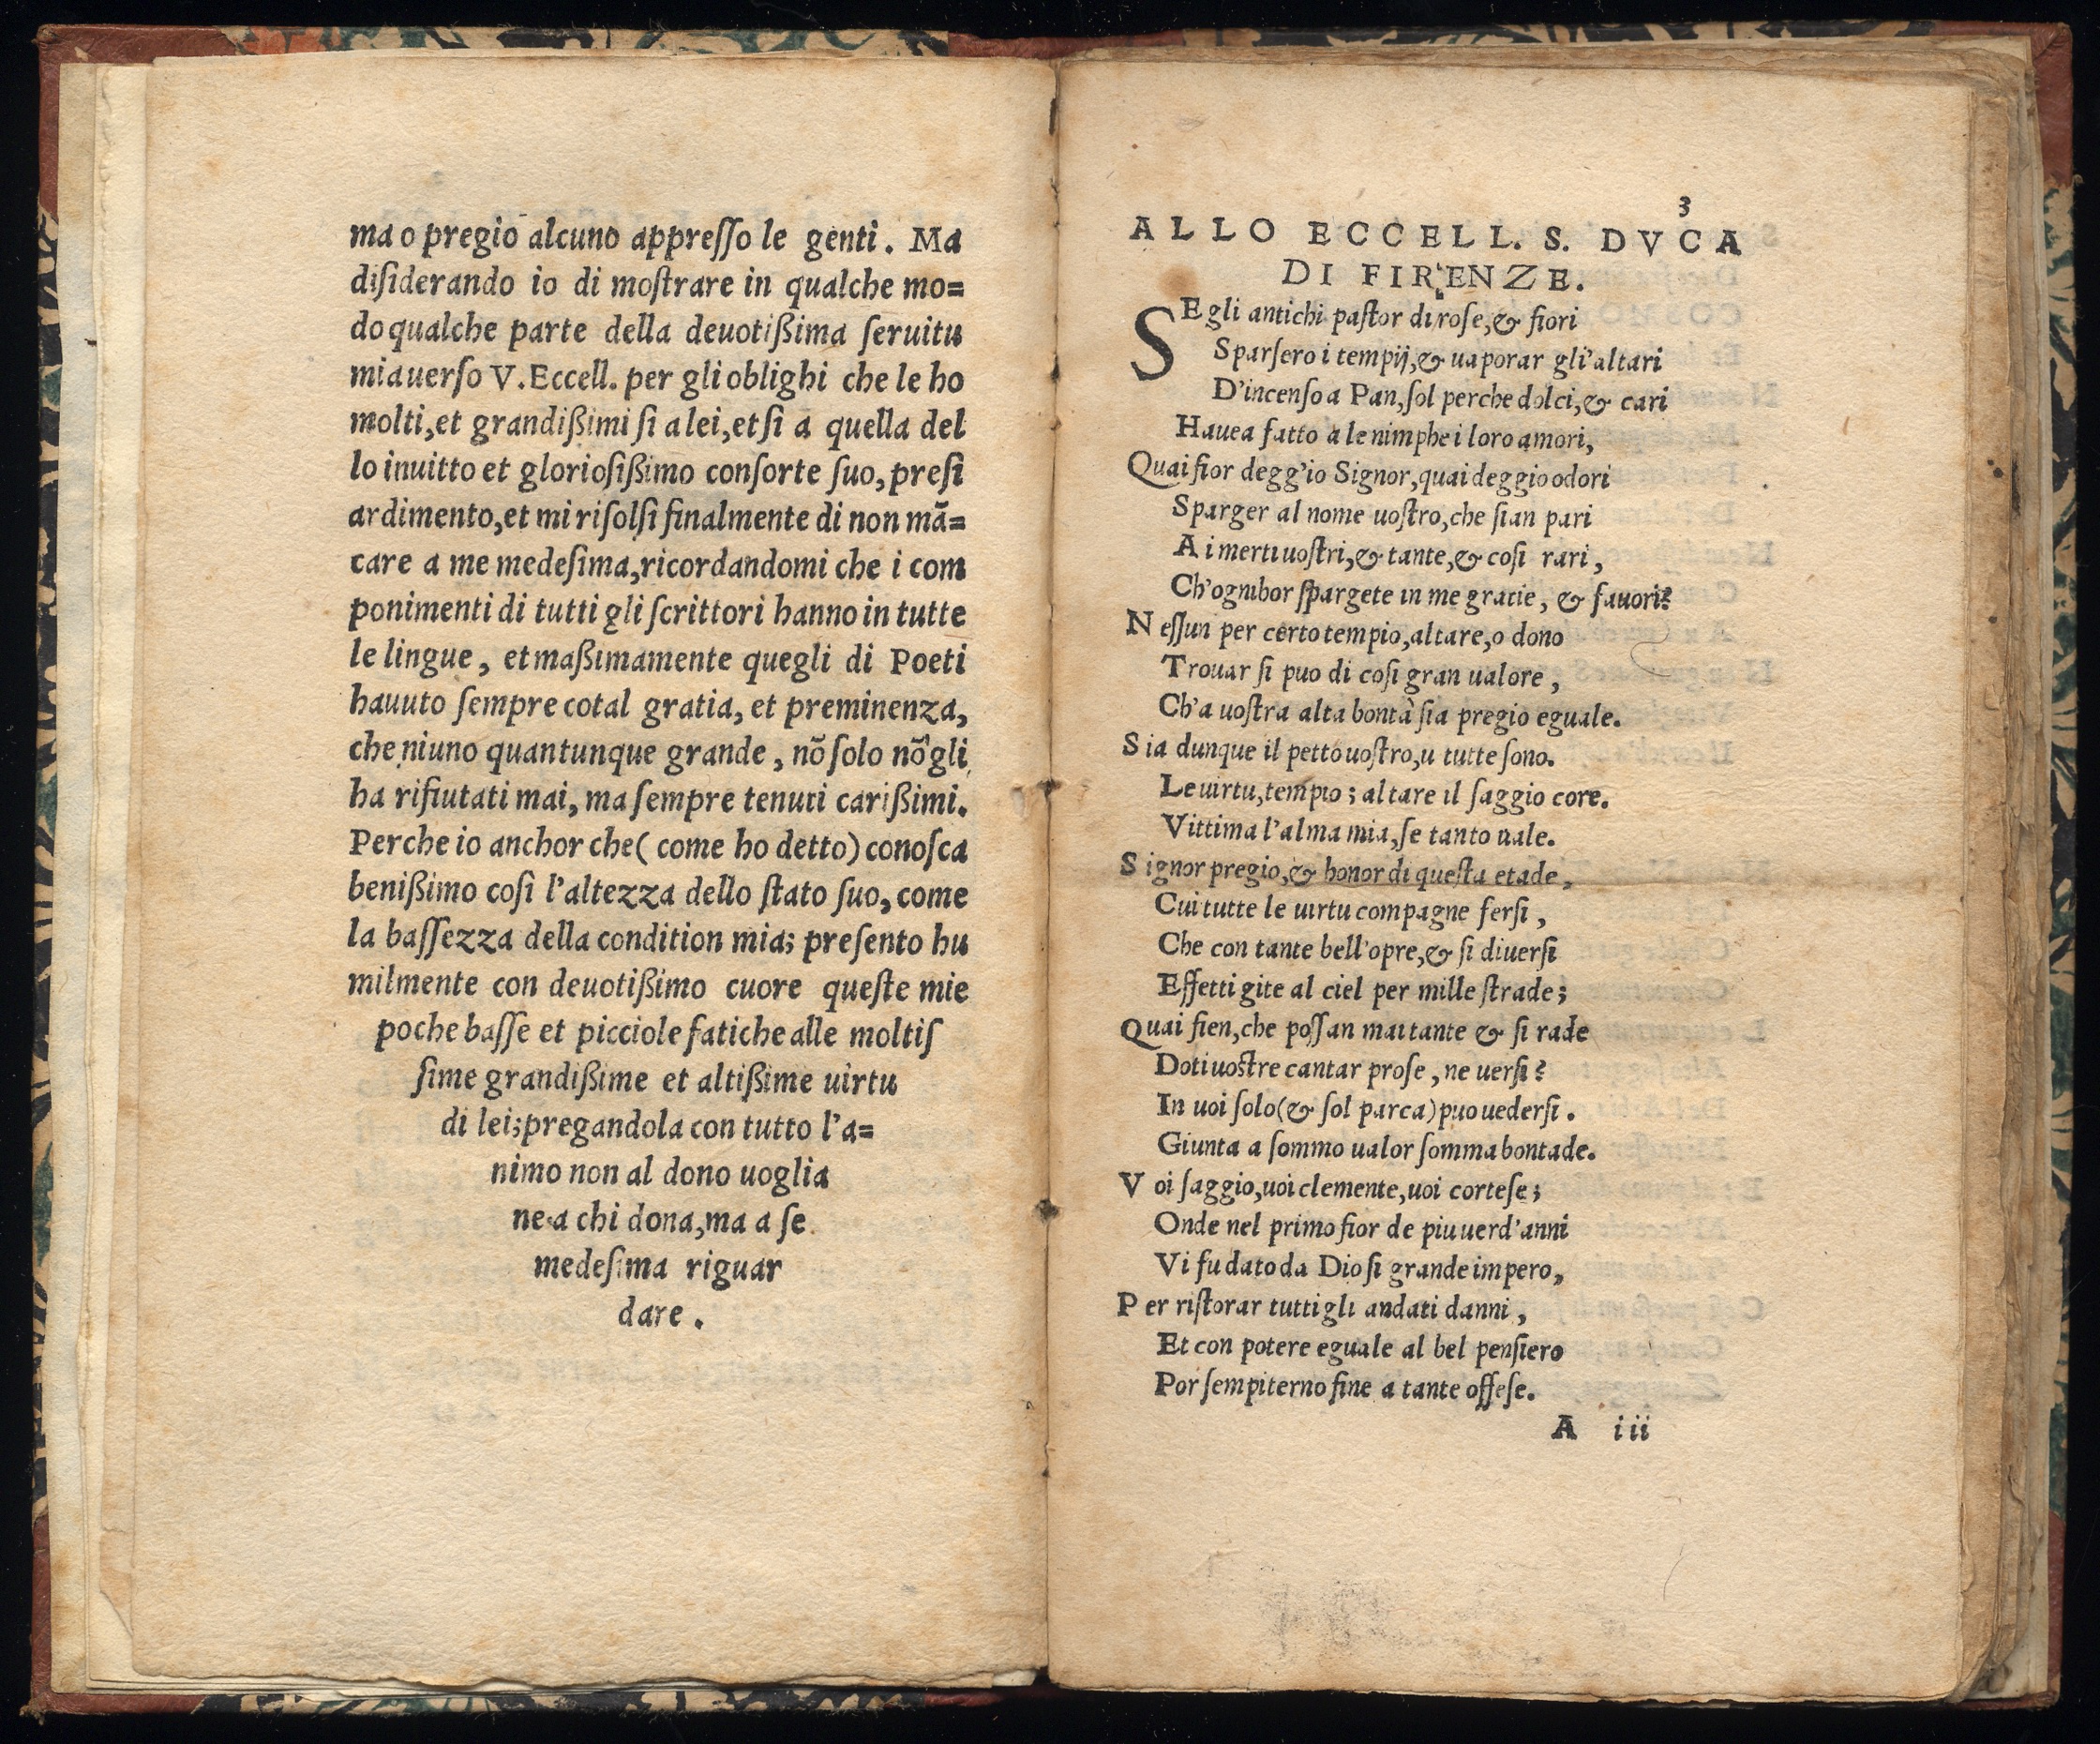 ma o pregio alcuno appreſſo le genti. Ma
diſiderando io di moſtrare in qualche mo=
do qualche parte della deuotißima ſeruitu
mia uerſo V. Eccell. per gli oblighi che le ho
molti, et grandißimi ſi a lei, et ſi a quella del
lo inuitto et glorioſißimo conſorte ſuo, preſi
ardimento, et mi riſolſi finalmente di non mã=
care a me medeſima, ricordandomi che i com
ponimenti di tutti gli ſcrittori hanno in tutte
le lingue, et maßimamente quegli di Poeti
hauuto ſempre cotal gratia, et preminenza,
che niuno quantunque grande, nõ ſolo nõ gli
ha rifiutati mai, ma ſempre tenuti carißimi.
Perche io anchor che (come ho detto) conoſca
benißimo coſi l'altezza dello ſtato ſuo, come
la baſſezza della condition mia; preſento hu
milmente con deuotißimo cuore queſte mie
poche baſſe et picciole fatiche alle moltiſ
ſime grandißime et altißime uirtu
di lei; pregandola con tutto l'a=
nimo non al dono uoglia
ne a chi dona, ma a ſe
medeſima riguar
dare.
3
ALLO ECCELL. S. DVCA
DI FIRENZE.
SE gli antichi paſtor di roſe, & fiori
Sparſero i tempij, & uaporar gli'altari
D'incenſo a Pan, ſol perche dolci, & cari
Hauea fatto a le nimphe i loro amori,
Quai fior degg'io Signor, quai deggio odori
Sparger al nome uoſtro, che ſian pari
A i merti uoſtri, & tante, & coſi rari,
Ch'ognihor ſpargete in me gratie, & fauori?
Neſſun per certo tempio, altare, o dono
Trouar ſi puo di coſi gran ualore,
Ch'a uoſtra alta bontà ſia pregio eguale.
Sia dunque il petto uoſtro, u tutte ſono.
Le uirtu, tempio; altare il ſaggio core.
Vittima l'alma mia, ſe tanto uale.
Signor pregio, & honor di queſta etade,
Cui tutte le uirtu compagne ferſi,
Che con tante bell'opre, & ſi diuerſi
Effetti gite al ciel per mille ſtrade;
Quai fien, che poſſan mai tante & ſi rade
Doti uoſtre cantar proſe, ne uerſi?
In uoi ſolo (& ſol parca) puo uederſi.
Giunta a ſommo ualor ſomma bontade.
Voi ſaggio, uoi clemente, uoi corteſe;
Onde nel primo fior de piu uerd'anni
Vi fu dato da Dio ſi grande impero,
Per riſtorar tutti gli andati danni,
Et con potere eguale al bel penſiero
Por ſempiterno fine a tante offeſe.
A iii